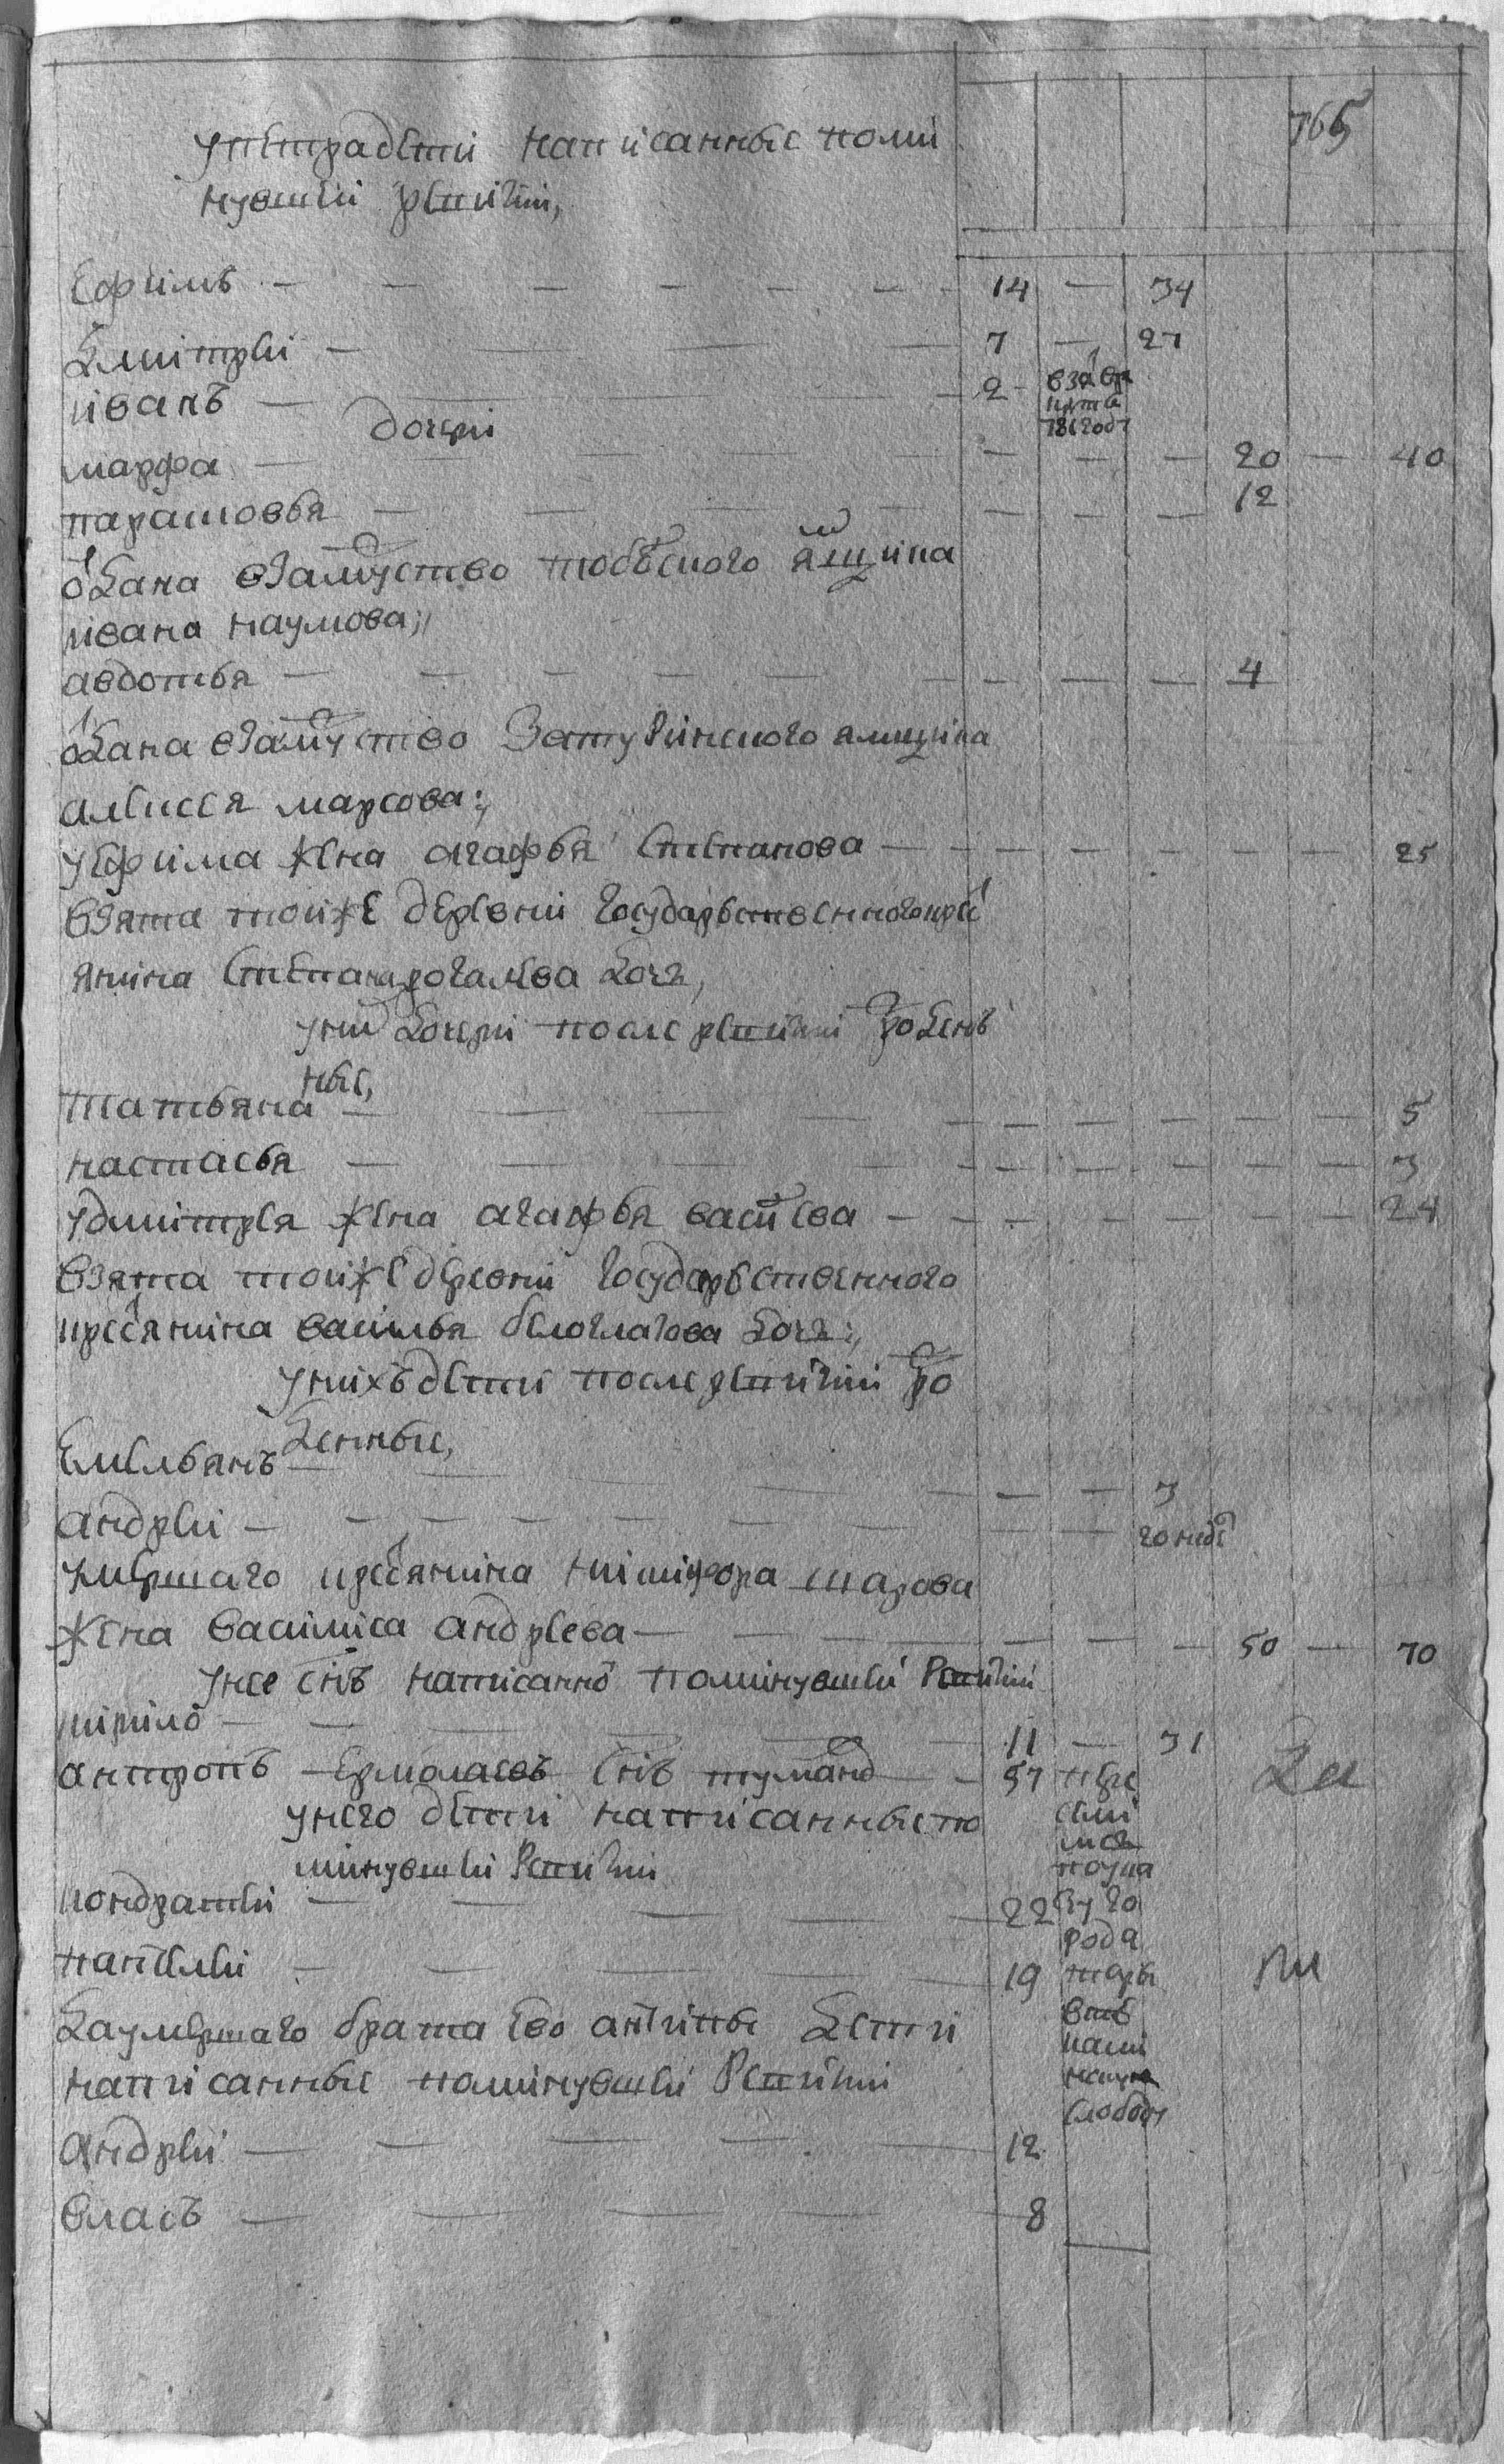 765
у петра дети написанные по мин
нувшеи ревизии,
ефимъ — — — — — — 14 — 34
дмитреи — — — — 7 — 27
иванъ — — — — 2 взят в рекруты 781 году
дочери
марфа — — — — — — — 20 — 40
парасковья — — — — — — — 12
отдана взамужство тобольского ямщика
ивана наумова;
авдотья — — — — — — — — 4
отдана взамужство ямщика
алексея марсова:
у ефима жена агафья степанова — — — — — — 25
взята тои же деревни государственного крес
янина степана рогалева дочь,
у них дочери после ревизии рожден
ные,
татьяна — — — — — — — — 5
настасья — — — — — — — — 3
у дмитрея жена агафья васильева — — — — — — 24
взята тои же деревни государственного
кресянина василья белоглазова дочь;
у нихъ дети после ревизии ро
жденные,
емельянъ — — — — — — 3
андреи — — — — — — — — 20 недель
умершаго кресянина никифора шарова
жена василиса андреева — — — — — — — 50 — 70
у нее снъ написанно по минувшеи ревизии
кирило — — — — — 11 — 31
антропъ ермолаевъ снъ туманов — 57
пере
сели
лся
у него дети написанные по
минувшеи ревизии
кондратеи — — — — — 22
го
рода
пантелеи — — — — — 19
слободу
да умершаго брата ево антипы дети
написанные по минувшеи ревизии
андреи — — — — — 12
власъ — — — — — 8